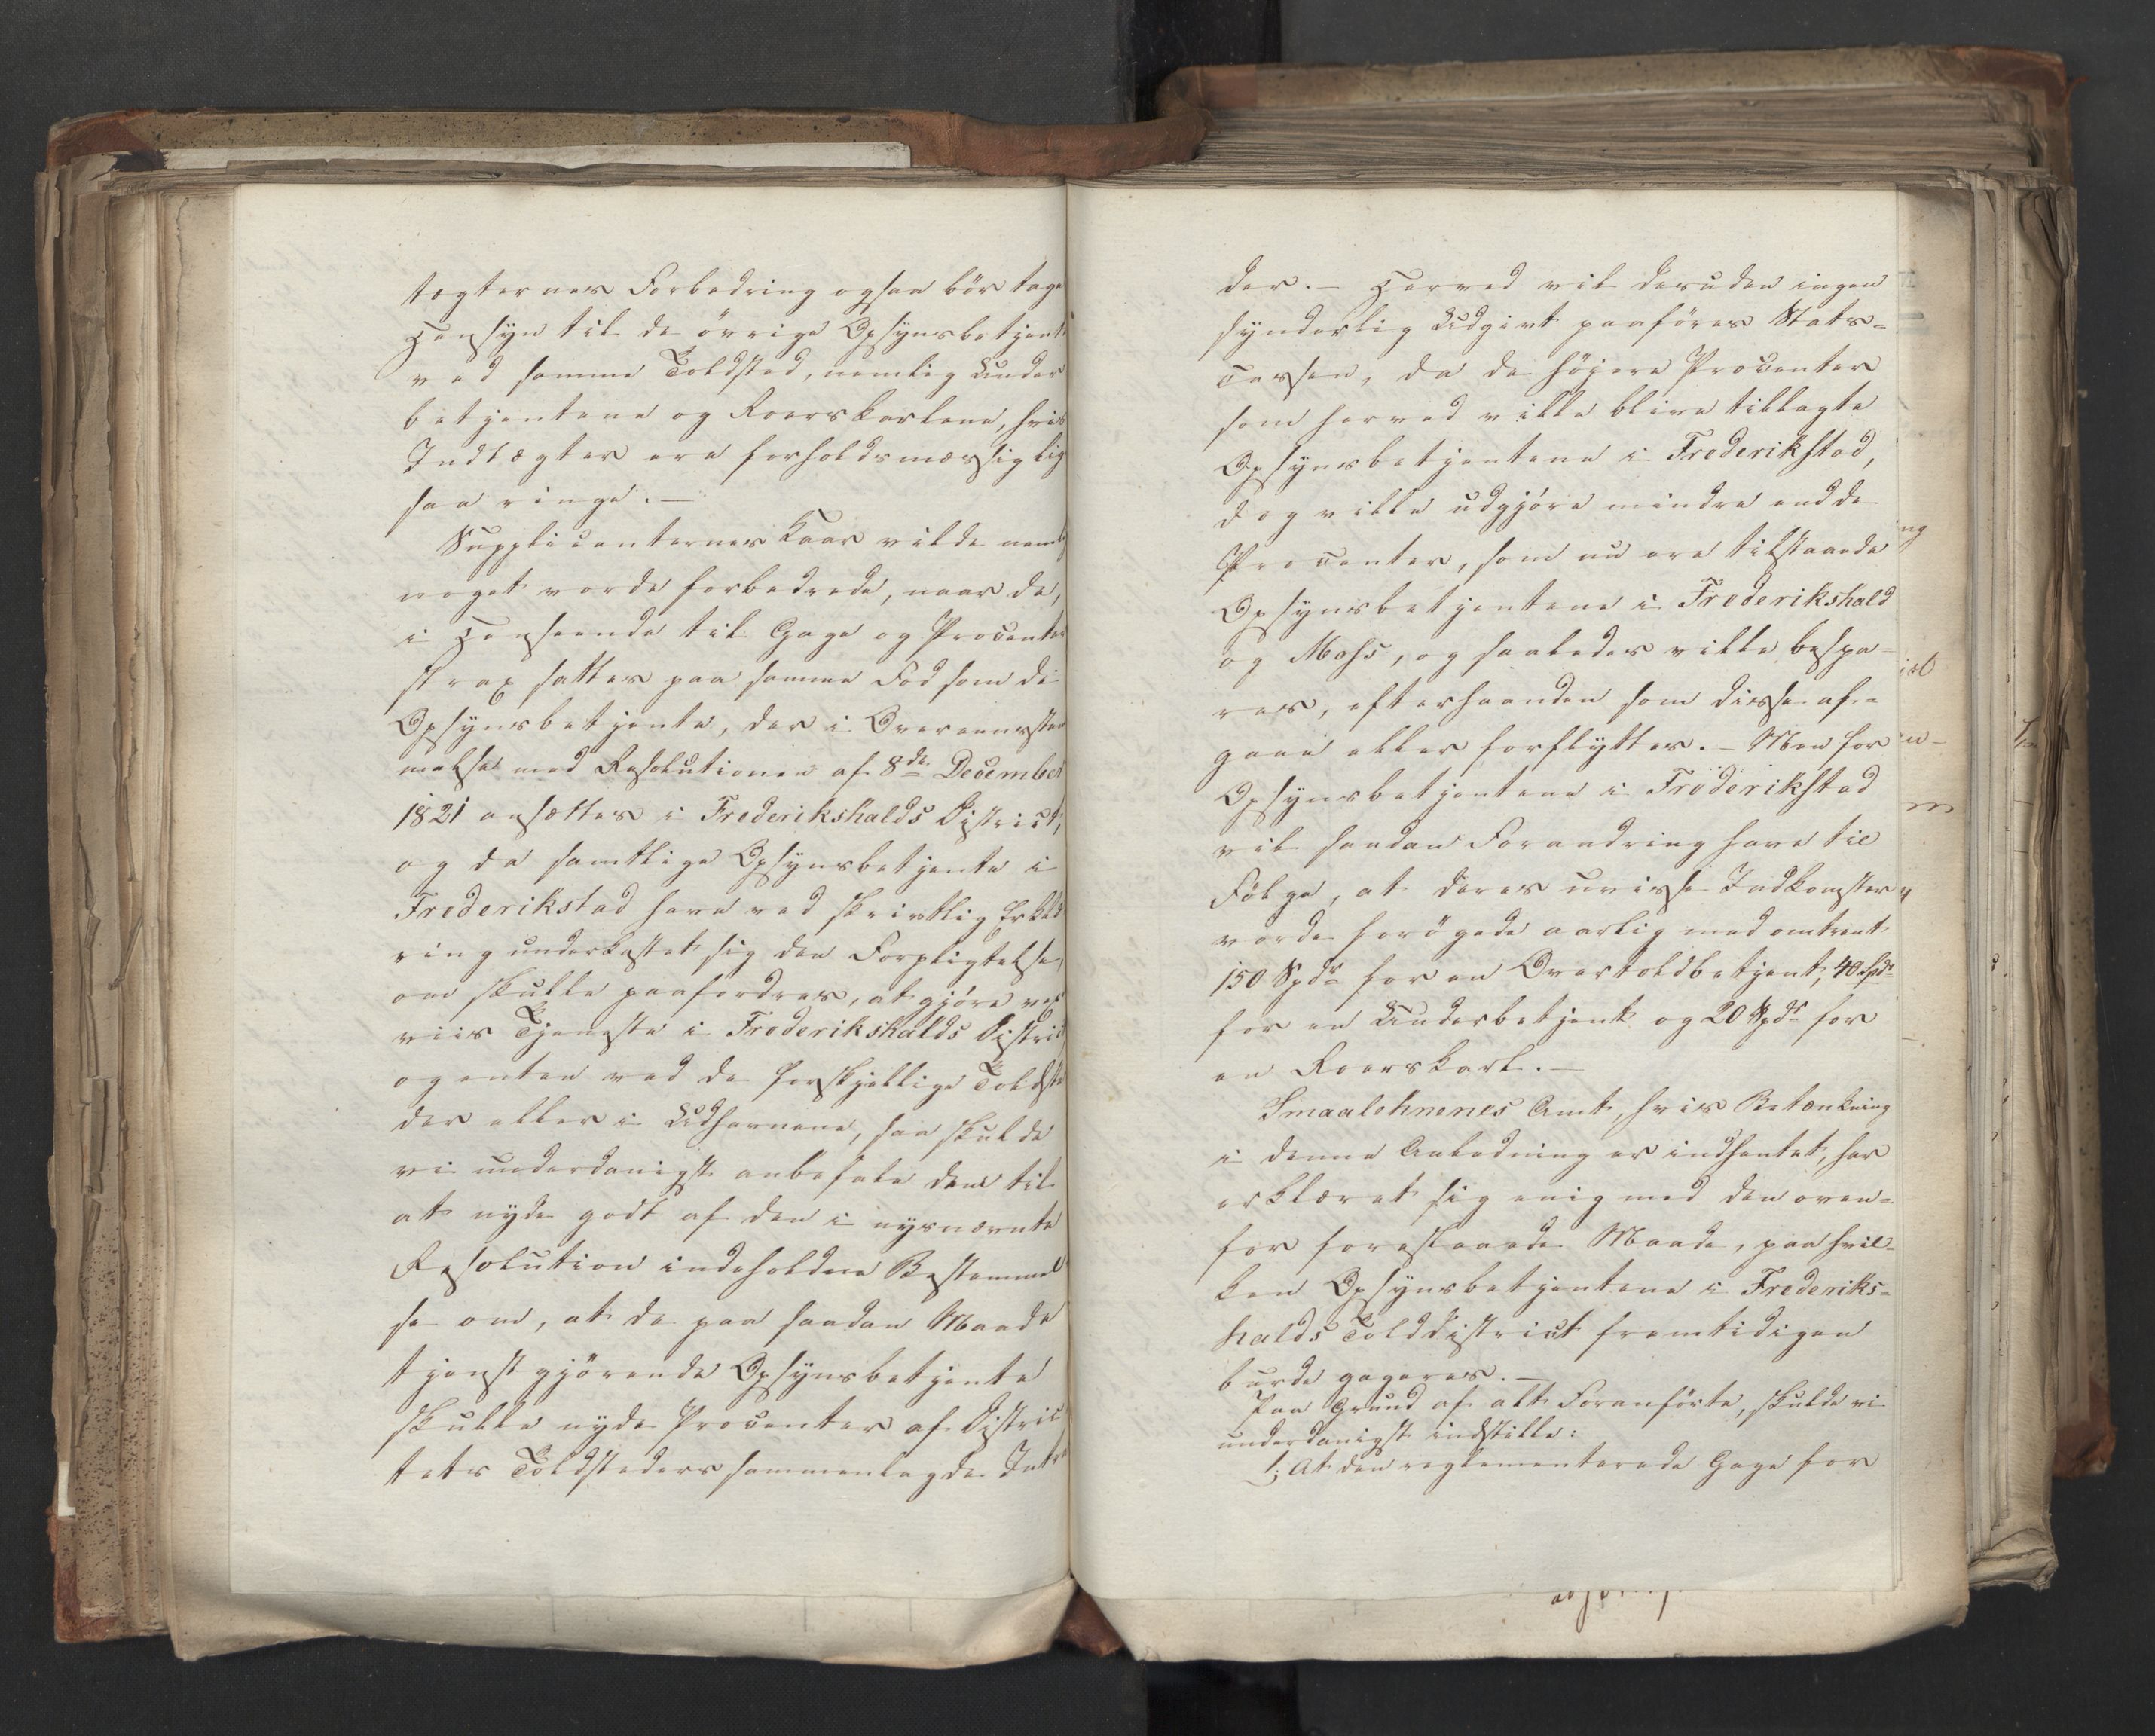 tægternes Forbedring ogsaa bör tages
Hensyn til de övrige Opsynsbetjente
ved samme Toldsted, nemlig Under
betjentene og Roerskarlene, hvis
Indtægter ere forholdsmæssiglig
saa ringe. —
Supplicanternes Kaar vilde nemlig
noget vorde forbedrede, naar de,
i Henseende til Gage og Procenter
strax sattes paa samme Fod som de
Opsynsbetjente, der i Overeensstem
melse med Resolutionen af 8de December
1821 ansættes i Frederikshalds District,
og da samtlige Opsynsbetjente i
Frederikstad have ved skrivtlig Erklæ
ring underkastet sig den Forpligtelse,
om skulle paafordres, at gjöre vex
viis Tjeneste i Frederikshalds District
og enten ved de forskjellige Toldste
der eller i Udhavnene, saa skulde
vi underdanigst anbefale dem til
at nyde godt af den i nysnævnte
Resolution indeholdne Bestemmel
se om, at de paa saadan Maade
tjenstgjörende Opsynsbetjente
skulle nyde Procenter af Distric
tets Toldsteders sammenlagde Intra
der. — Herved vil desuden ingen
synderlig Udgivt paaföres Stats-
Cassen, da de höjere Procenter
som herved ville blive tillagte
Opsynsbetjentene i Frederikstad,
dog ville udgjöre mindre end de
Procenter, som nu ere tilstaaede
Opsynsbetjentene i Frederikshald
og Moss, og saaledes ville bespa-
res, efterhaanden som disse af-
gaae eller forflyttes. — Men for
Opsynsbetjentene i Frederikstad
vil saadan Forandring have til
Fölge, at deres uvisse Indkomster
vorde forögede aarlig med omtrent
150 Spdr for en Overtoldbetjent, 40 Spdr
for en Underbetjent og 20 Spdr for
en Roerskarl. —
Smaalehnenes Amt, hvis Betænkning
i denne Anledning er indhentet, har
erklæret sig enig med den oven-
for foreslaaede Maade, paa hvil-
ken Opsynsbetjentene i Frederiks-
halds Tolddistrict fremtidigen
burde gageres. —
Paa Grund af alt Foranförte, skulde vi
underdanigst indstille:
1; At den reglementerede Gage for